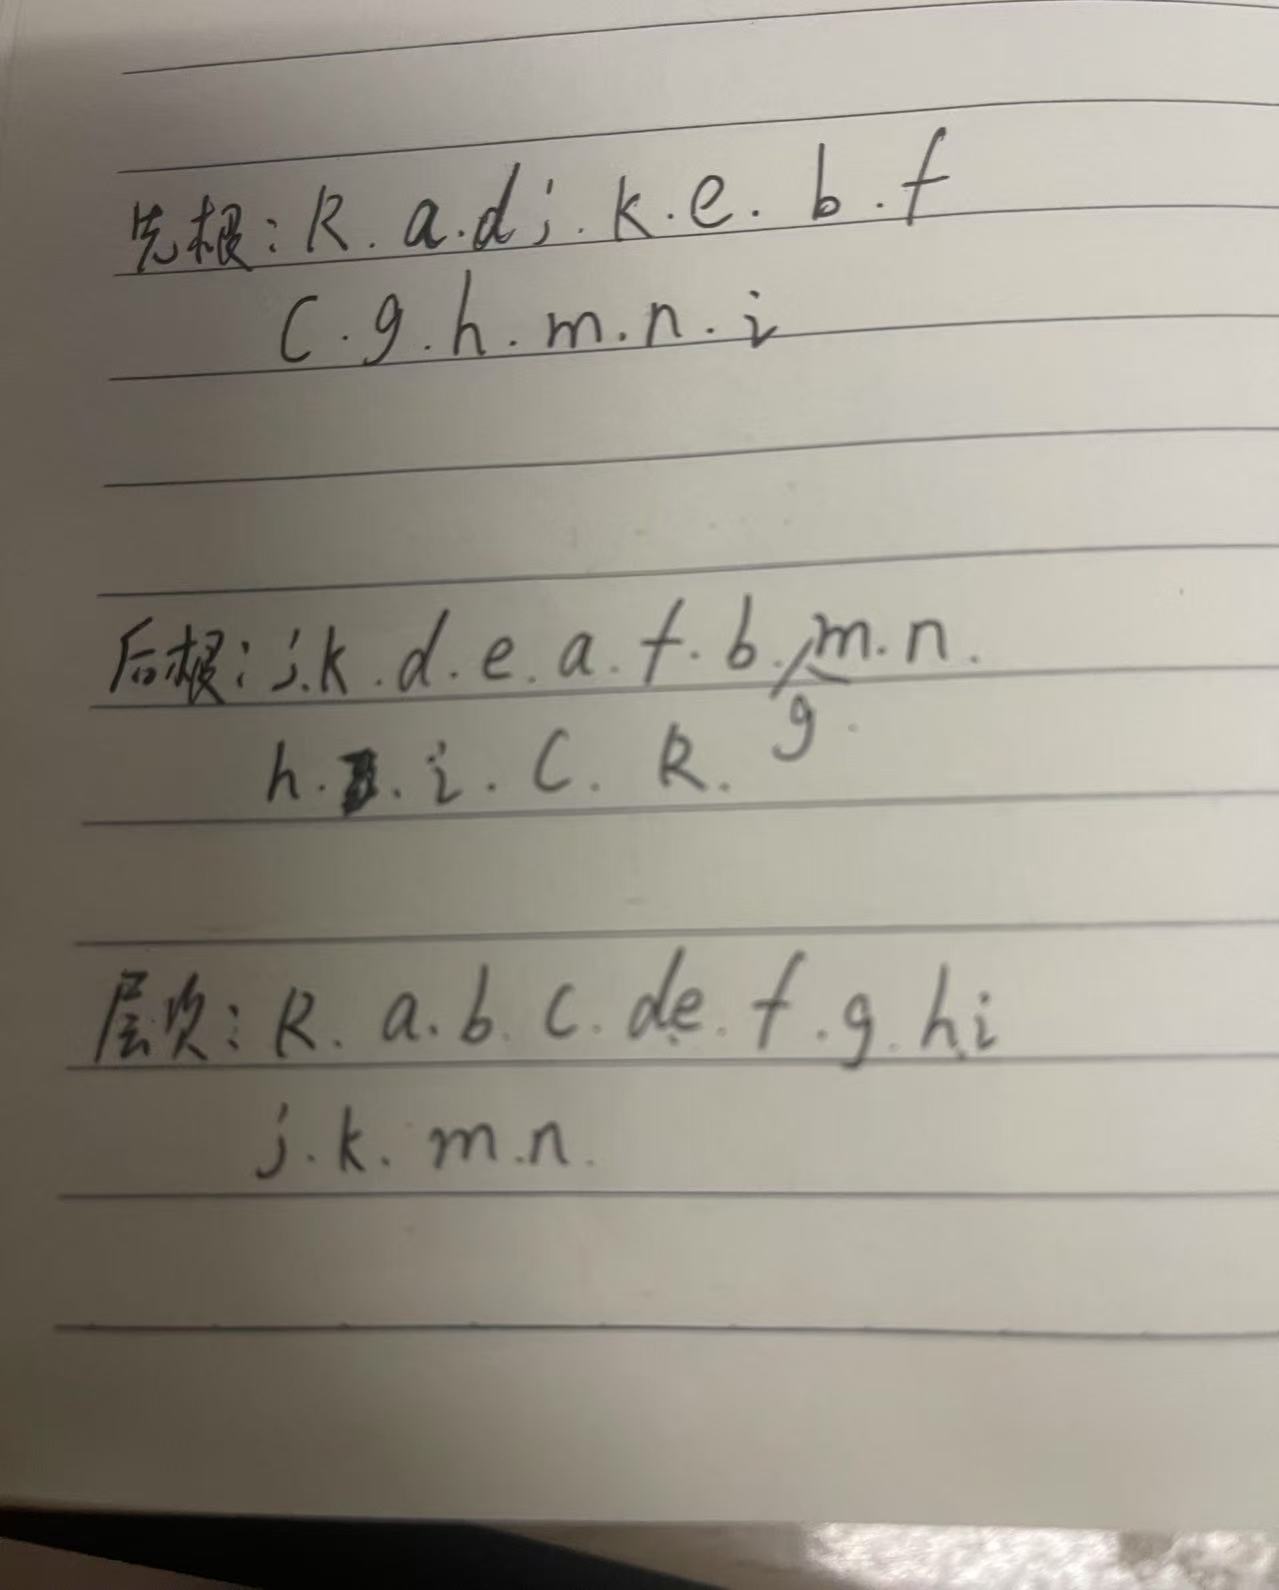 先根: R. a.d j. k.e. b.f
C.g.h.m.n.i
后根: j.k.d.e.a.f.b.g.m.n.
h. i. C. R.
层次: R. a.b.c.de.f.g.h.i
j.k.m.n.